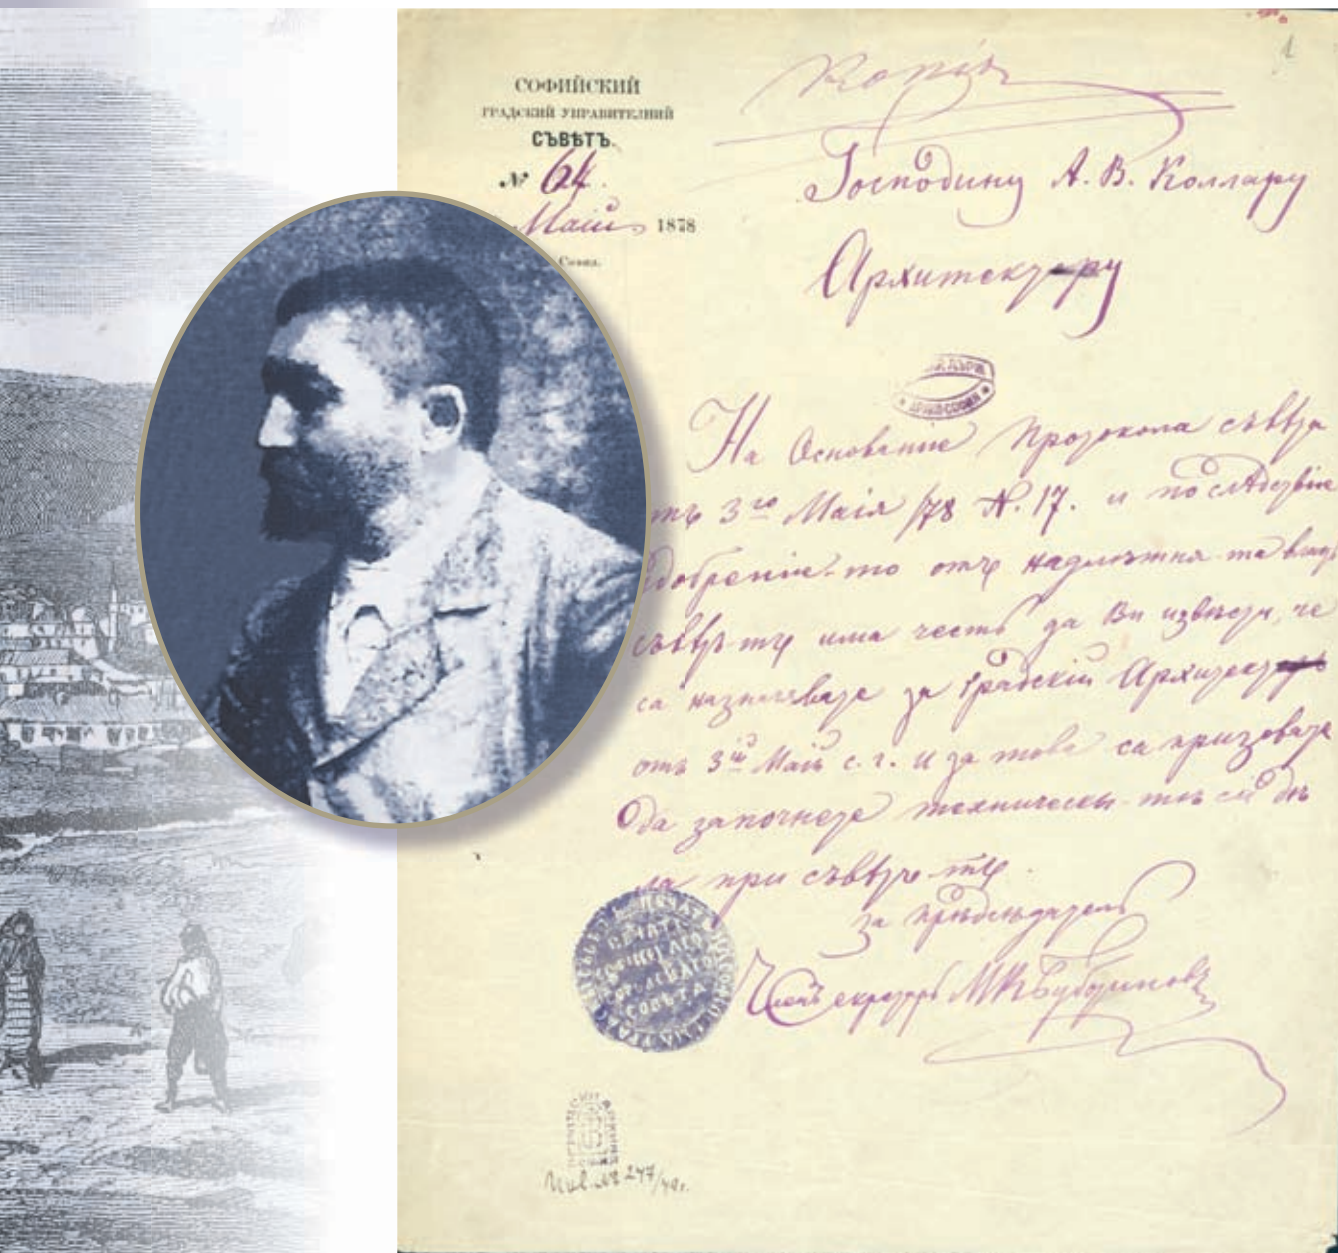 Копія
СОФИЙСКИЙ
ГРАДСКИЙ УПРАВИТЕЛНИЙ
СЪВѢТЪ.
№ 64.
Маий 1878
Господину А. В. Коллару
Архитектору
На Основание Протокола съвѣта
3го Маія /78 N. 17. и последствие
одобрение-то отъ надлѣжна та власт
съвѣтъ тъ има честь да Ви извѣсти, че
са назначавате за градскій Архитектъ
отъ 3ій Маій с. г. и за това са призовавате
да започнете технически-тѣ си дѣ
ла при съвѣтъ тъ.
за прѣдсѣдатель
Членъ секретарь М К Буботиновъ
ПЕЧАТЬ
СОФІЙСКАГО
СОВѢТА
Инв. № 247/49г.